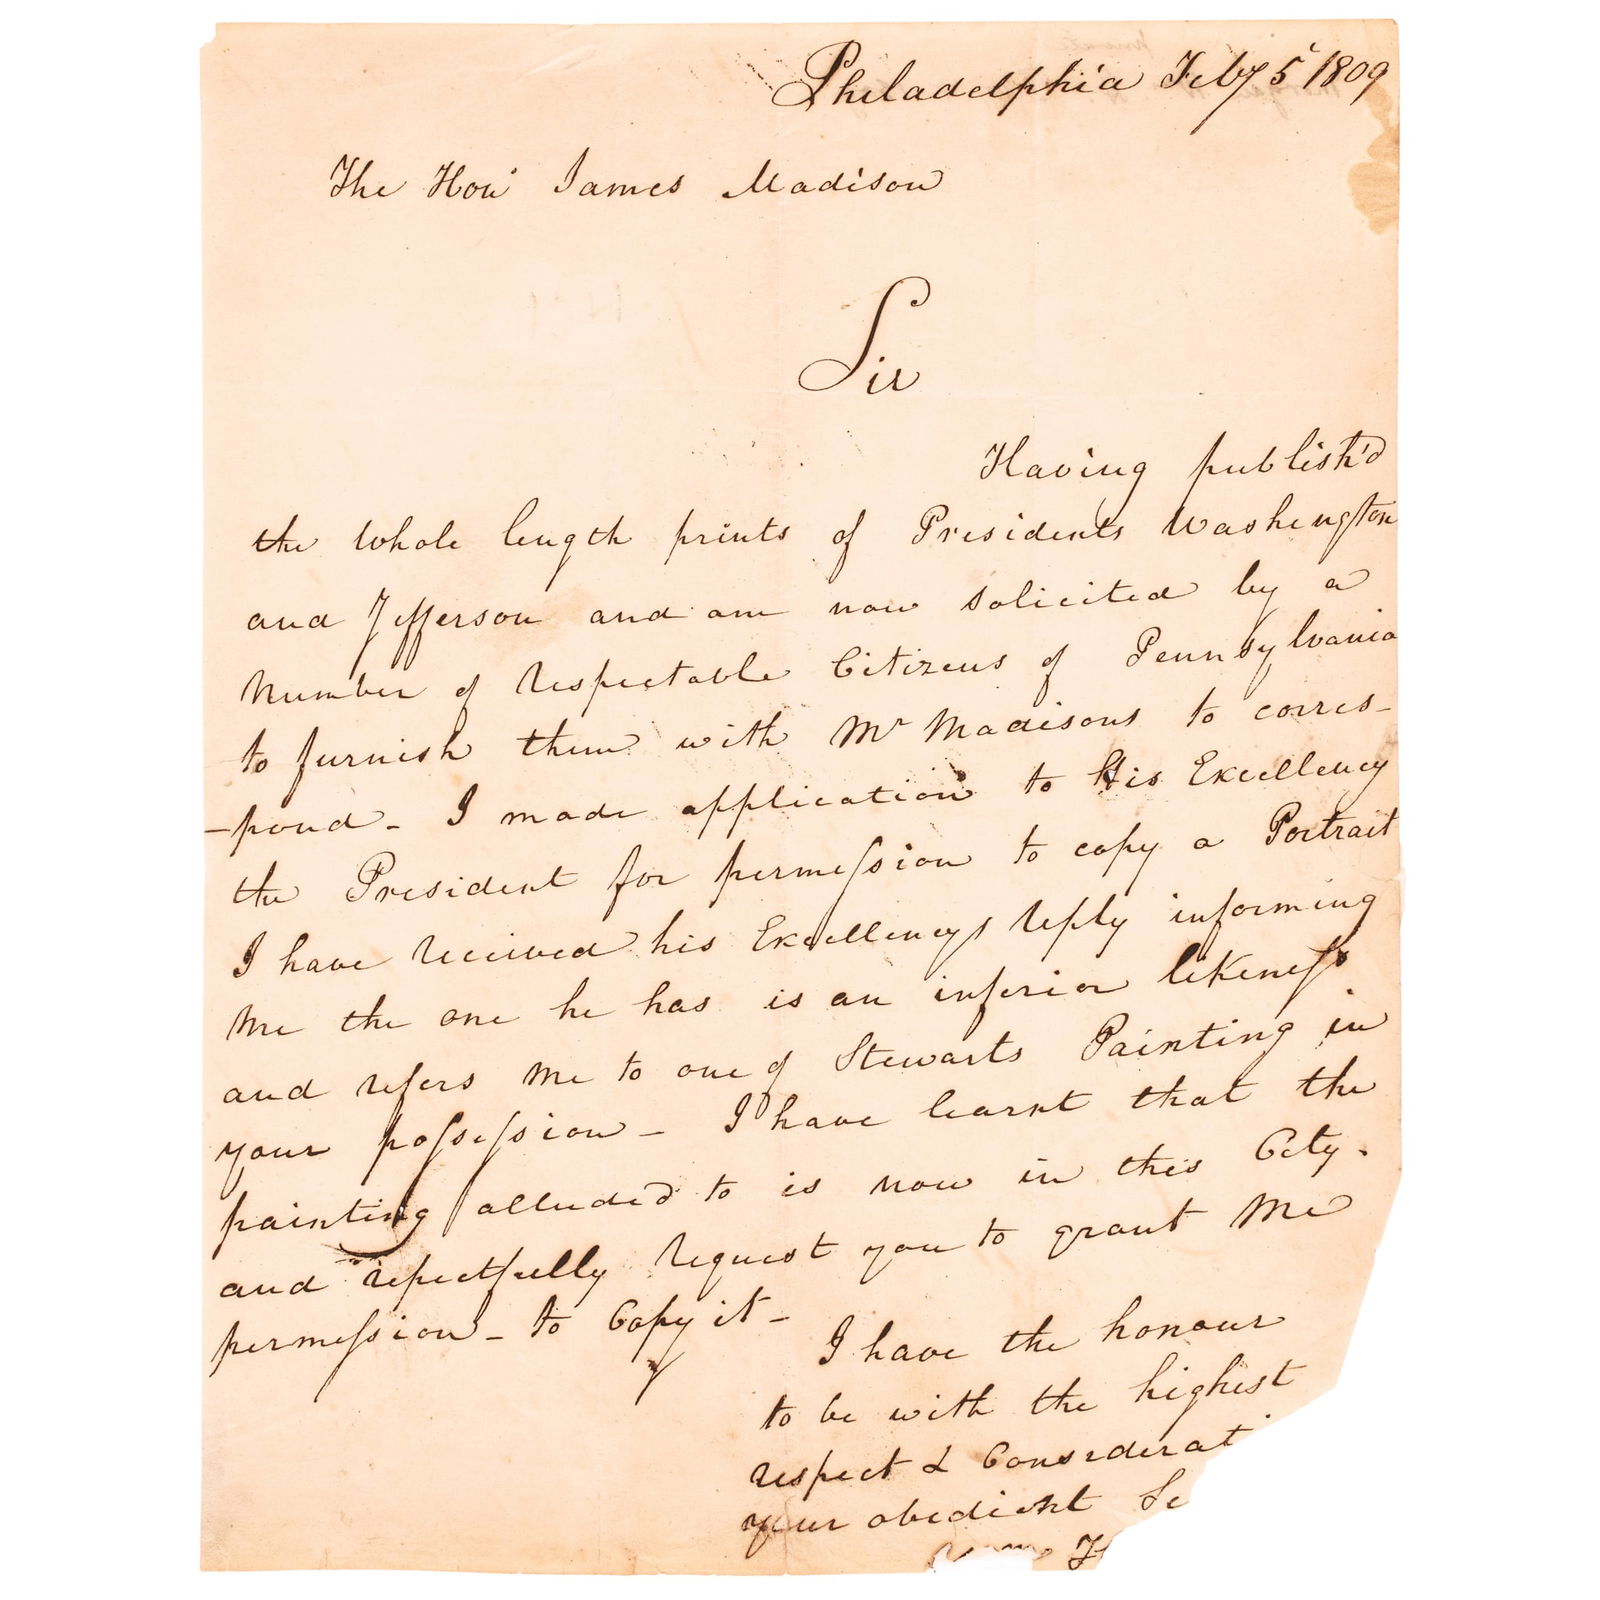 Philadelphia Feby 5 1809
The Hon James Madison
Sir
Having publish'd
the whole length prints of Presidents Washington
and Jefferson and am now solicited by a
Number of respectable Citizens of Pennsylvania
to furnish them with Mr Madisons to corres-
-pond - I made application to His Excellency
the President for permission to copy a Portrait
I have received his Excellencys reply informing
me the one he has is an inferior likeness
and refers me to one of Stewarts Painting in
your possession - I have learnt that the
painting alluded to is now in this City.
and respectfully request you to grant Me
permession - to Copy it -
I have the honour
to be with the highest
respect & Considerat
your obedient Se